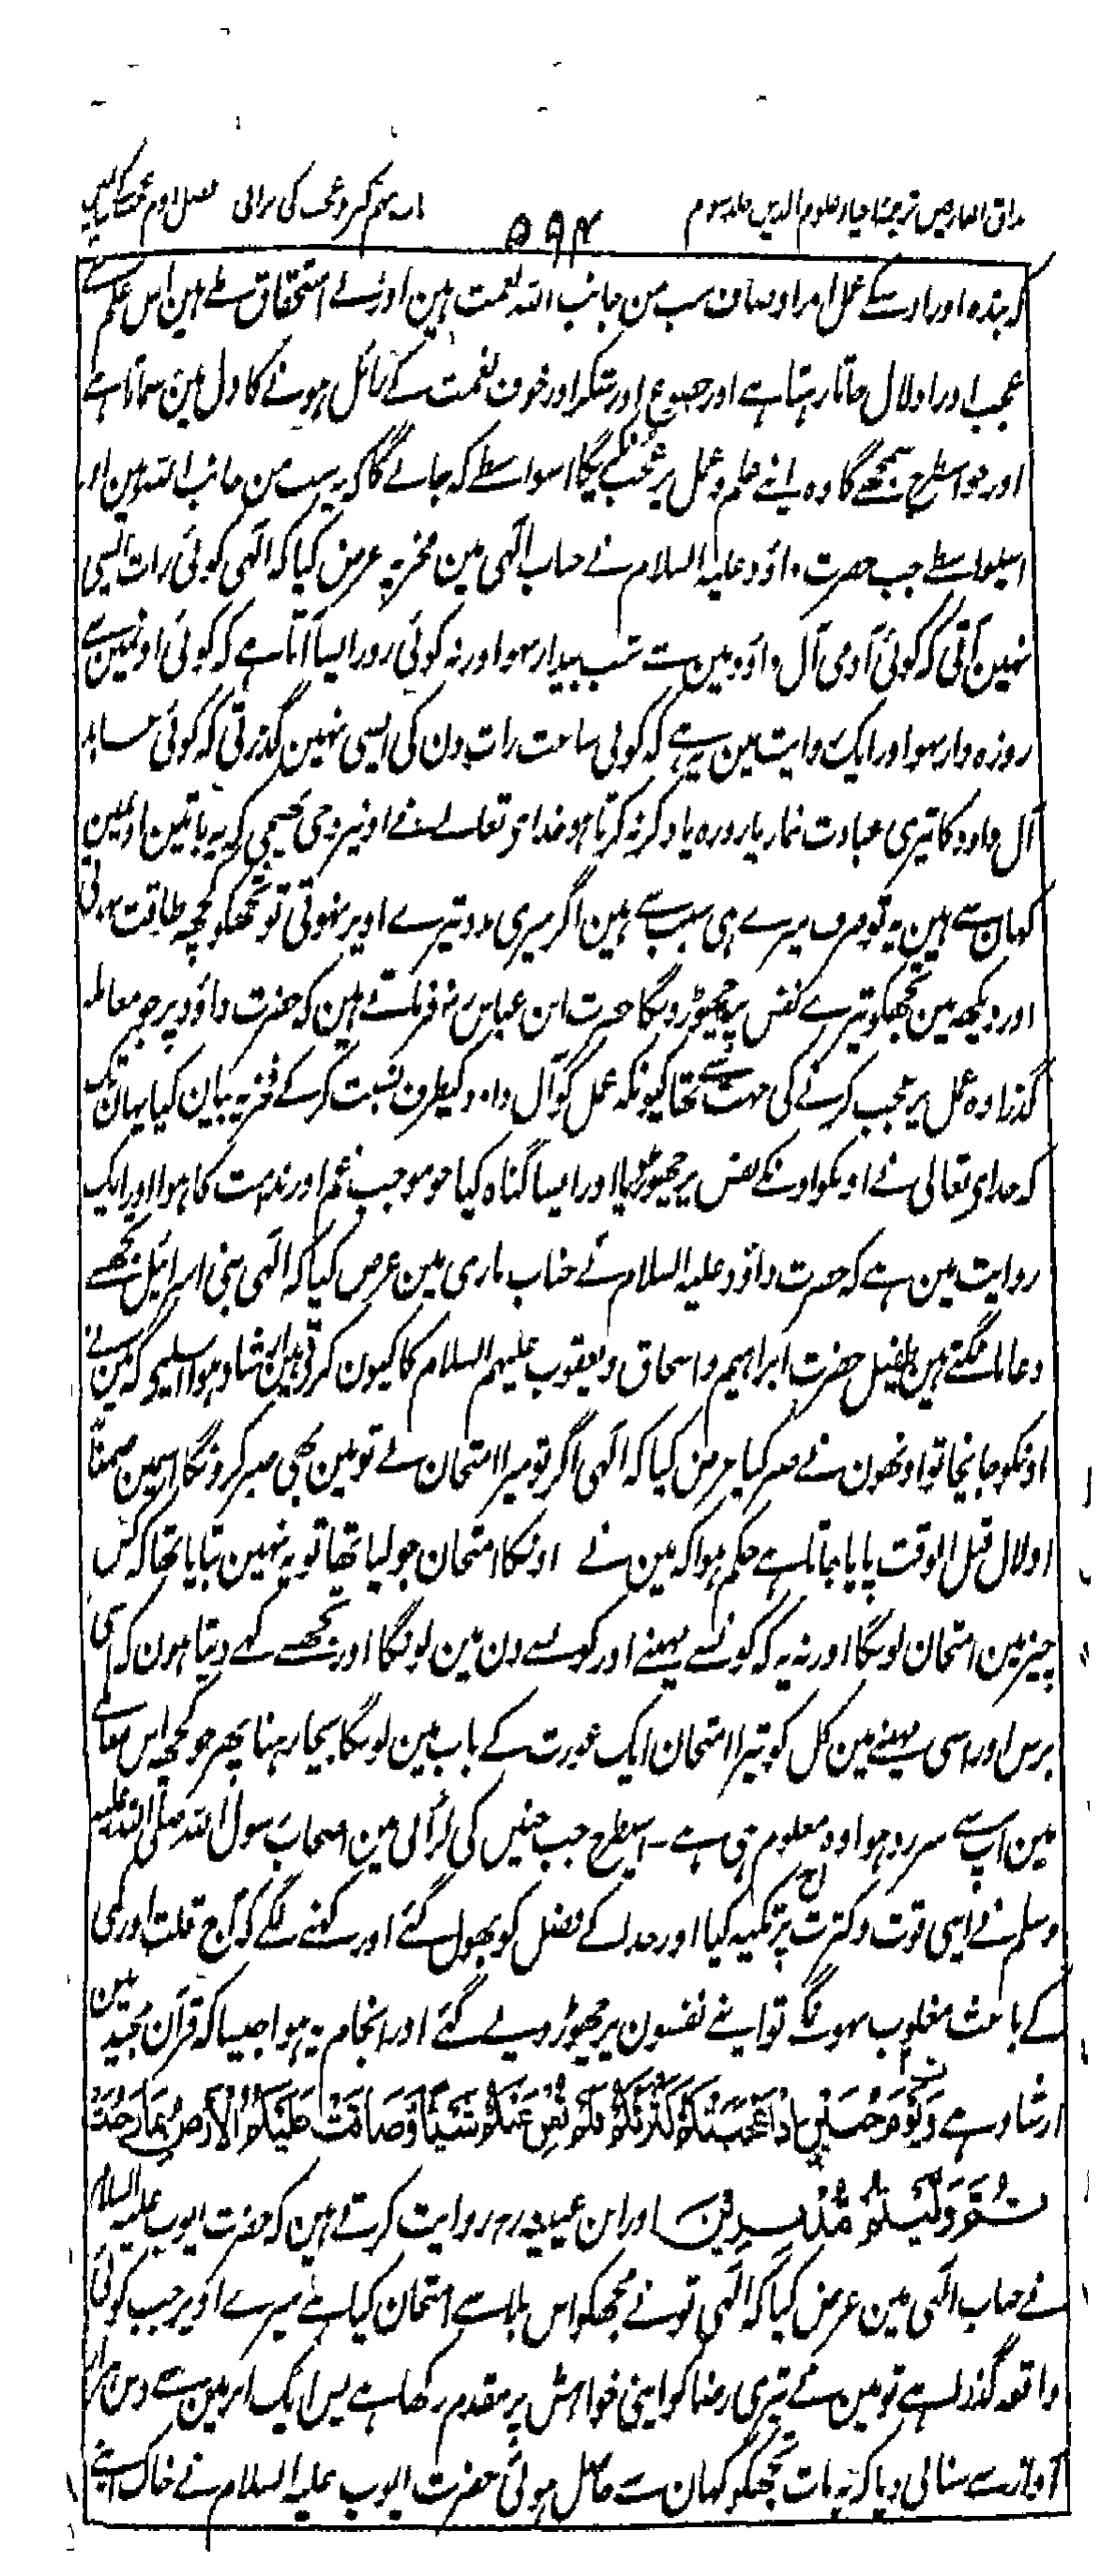 مذاق العارفین ترجمہ احیاء علوم الدین جلد سوم
۵۹۴
باب نہم کبر و عجب کی برائی فصل دوم عجب کے بیان
کہ بندہ اور اوسکے عمل اور اوصاف سب من جانب اللہ نعمت ہین اور بے استحقاق ملے ہین اس علم سے
عجب اور ادلال جاتا رہتا ہے اور خضوع اور شکر اور خوف نعمت کے زائل ہونے کا دل مین سماتا ہے
اور جو اسطرح سمجھے گا وہ اپنے علم و عمل پر عجب نکریگا اسواسطے کہ جانے گا کہ یہ سب من جانب اللہ ہین اور
اسیواسطے جب حضرت داؤد علیہ السلام نے جناب الٰہی مین فخریہ عرض کیا کہ الٰہی کوئی رات ایسی
نہین آتی کہ کوئی آدمی آل داؤد مین سے شب بیدار نہو اور نہ کوئی روز ایسا آتا ہے کہ کوئی اونمین سے
روزہ دار نہو اور ایک روایت مین یہ ہے کہ کوئی ساعت رات دن کی ایسی نہین گذرتی کہ کوئی عابد
آل داود کا تیری عبادت نماز یا روزہ یا ذکر نہ کرتا ہو خداے تعالے نے اونپر وحی بھیجی کہ یہ باتین اونمین
کہان سے ہین یہ تو صرف میرے ہی سبب سے ہین اگر میری مدد تیرے اوپر نہوتی تو تجھکو کچھ طاقت نہوتی
اور دیکھ مین تجھکو تیرے نفس پر چھوڑ دونگا حضرت ابن عباس رض فرماتے ہین کہ حضرت داؤد پر جو معاملہ
گذرا وہ عمل پر عجب کرنے کی جہت سے تھا کیونکہ عمل کو آل داود کیطرف نسبت کرکے فخریہ بیان کیا یہان تک
کہ خداے تعالی نے اونکو اونکے نفس پر چھوڑ دیا اور ایسا گناہ کیا جو موجب غم اور ندامت کا ہوا اور ایک
روایت مین ہے کہ حضرت داؤد علیہ السلام نے جناب باری مین عرض کیا کہ الٰہی بنی اسرائیل تجھسے
دعا مانگتے ہین بطفیل حضرت ابراہیم و اسحاق و یعقوب علیہم السلام کا کیون کرتے ہین ارشاد ہوا اسلیے کہ مین نے
اونکو جانچا تو اونھون نے صبر کیا عرض کیا کہ الٰہی اگر تو میرا امتحان لے تو مین بھی صبر کرونگا اسمین ضمناً
ادلال قبل الوقت پایا جاتا ہے حکم ہوا کہ مین نے اونکا امتحان جو لیا تھا تو یہ نہین بتایا تھا کہ کس
چیز مین امتحان لونگا اور نہ یہ کہ کونسے مہینے اور کونسے دن مین لونگا اور تجھسے کہے دیتا ہون کہ اسی
برس اور اسی مہینے مین کل کو تیرا امتحان ایک عورت کے باب مین لونگا بچا رہنا پھر جو کچھ اس معاملے
مین آپ سے سرزد ہوا وہ معلوم ہی ہے۔ اسیطرح جب حنین کی لڑائی مین اصحاب رسول اللہ صلی اللہ علیہ
وسلم نے اپنی قوت و کثرت پر تکیہ کیا اور خدا کے فضل کو بھول گئے اور کہنے لگے کہ آج قلت اور کمی
کے باعث مغلوب نہونگے تو اپنے نفسون پر چھوڑ دیے گئے اور انجام یہ ہوا جیسا کہ قرآن مجید مین
ارشاد ہے وَیَوْمَ حُنَیْنٍ اِذْ اَعْجَبَتْکُمْ کَثْرَتُکُمْ فَلَمْ تُغْنِ عَنْکُمْ شَیْئًا وَّضَاقَتْ عَلَیْکُمُ الْاَرْضُ بِمَا رَحُبَتْ
ثُمَّ وَلَّیْتُمْ مُّدْبِرِیْنَ اور ابن عیینہ رہ روایت کرتے ہین کہ حضرت ایوب علیہ السلام
نے جناب الٰہی مین عرض کیا کہ الٰہی تو نے مجھکو اس بلا سے امتحان کیا ہے میرے اوپر جب کوئی
واقعہ گذرا ہے تو مین نے تیری رضا کو اپنی خواہش پر مقدم رکھا ہے پس ایک ابر مین سے دس ہزار
آواز سے سنائی دیا کہ یہ بات تجھکو کہان سے حاصل ہوئی حضرت ایوب علیہ السلام نے خاک اپنے